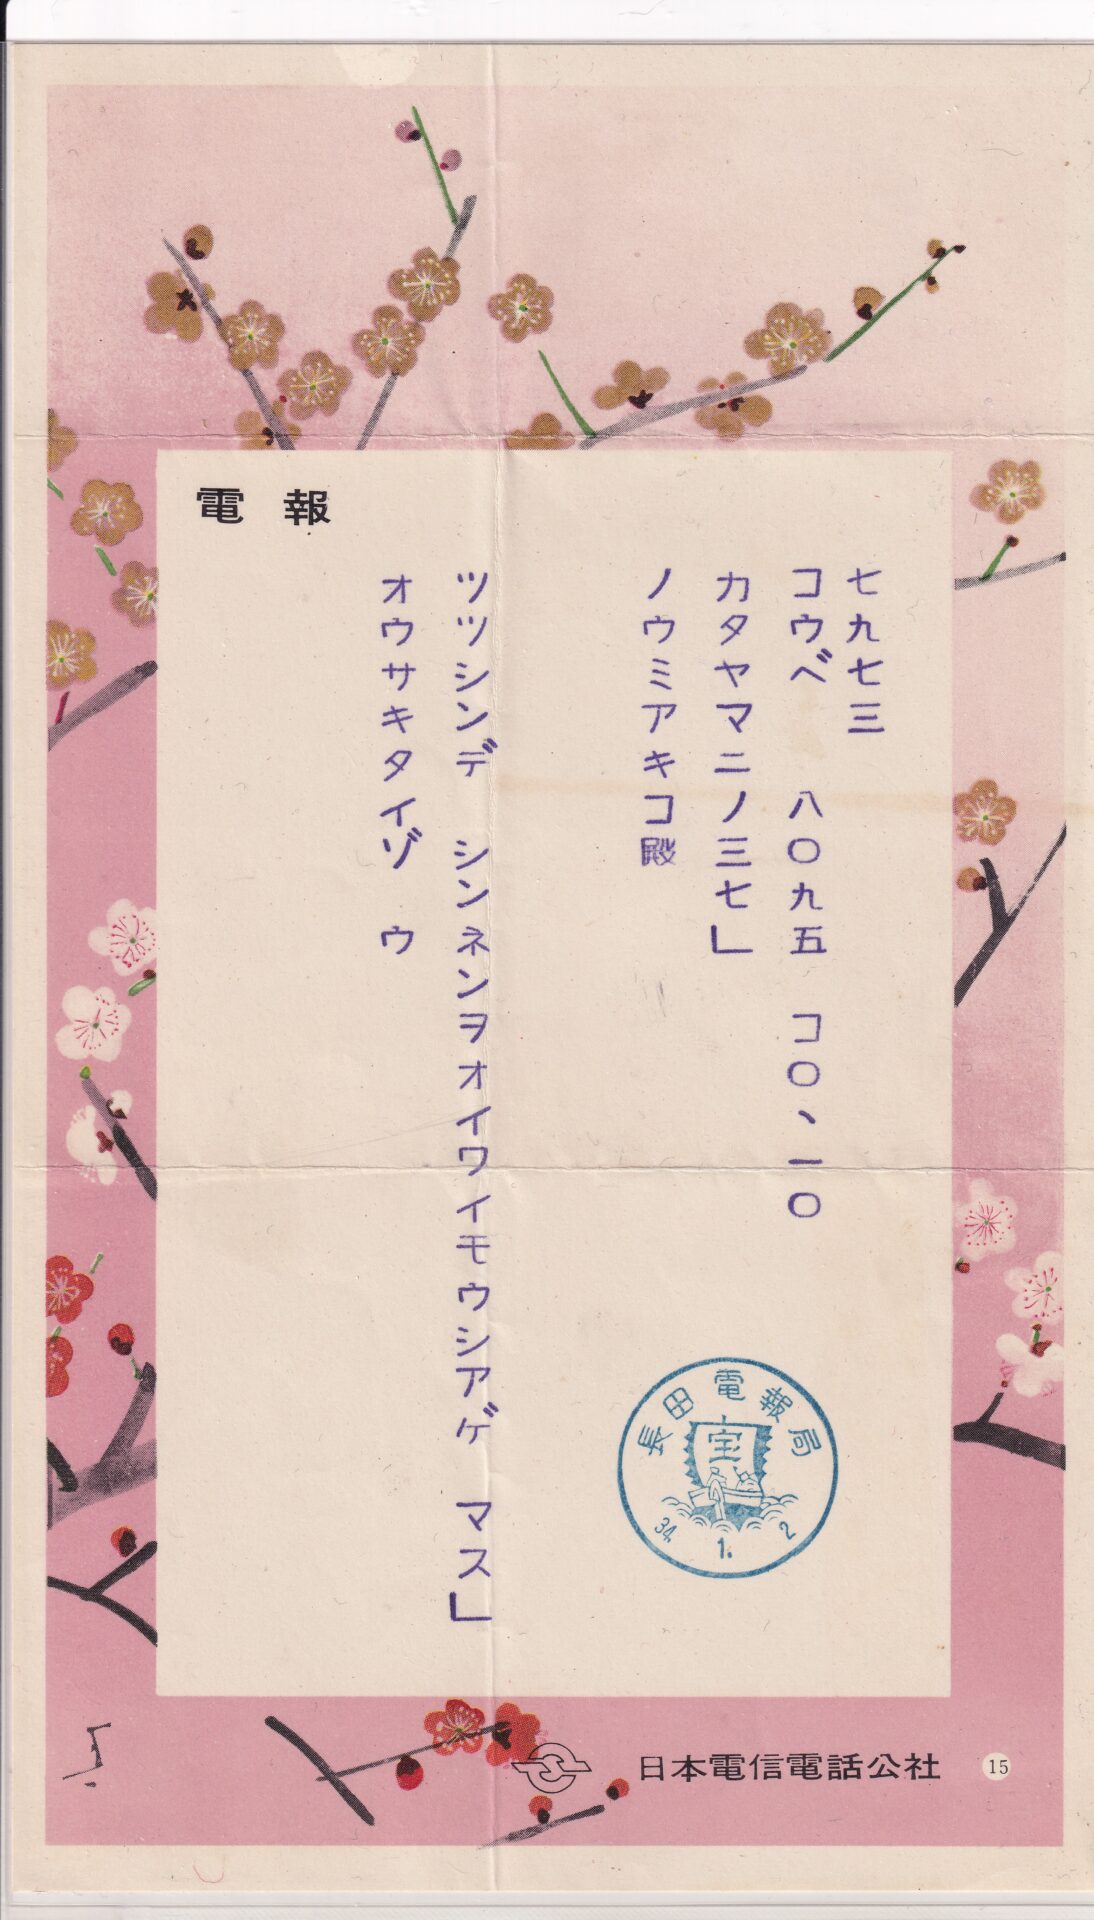 電報
七九七三
コウベ 八〇九五 コ〇、一〇
カタヤマニノ三七」
ノウミアキコ殿
ツツシンデ シンネンヲオイワイモウシアゲ マス」
オウサキタイゾ ウ
長田電報局
宝
34. 1. 2
日本電信電話公社
15